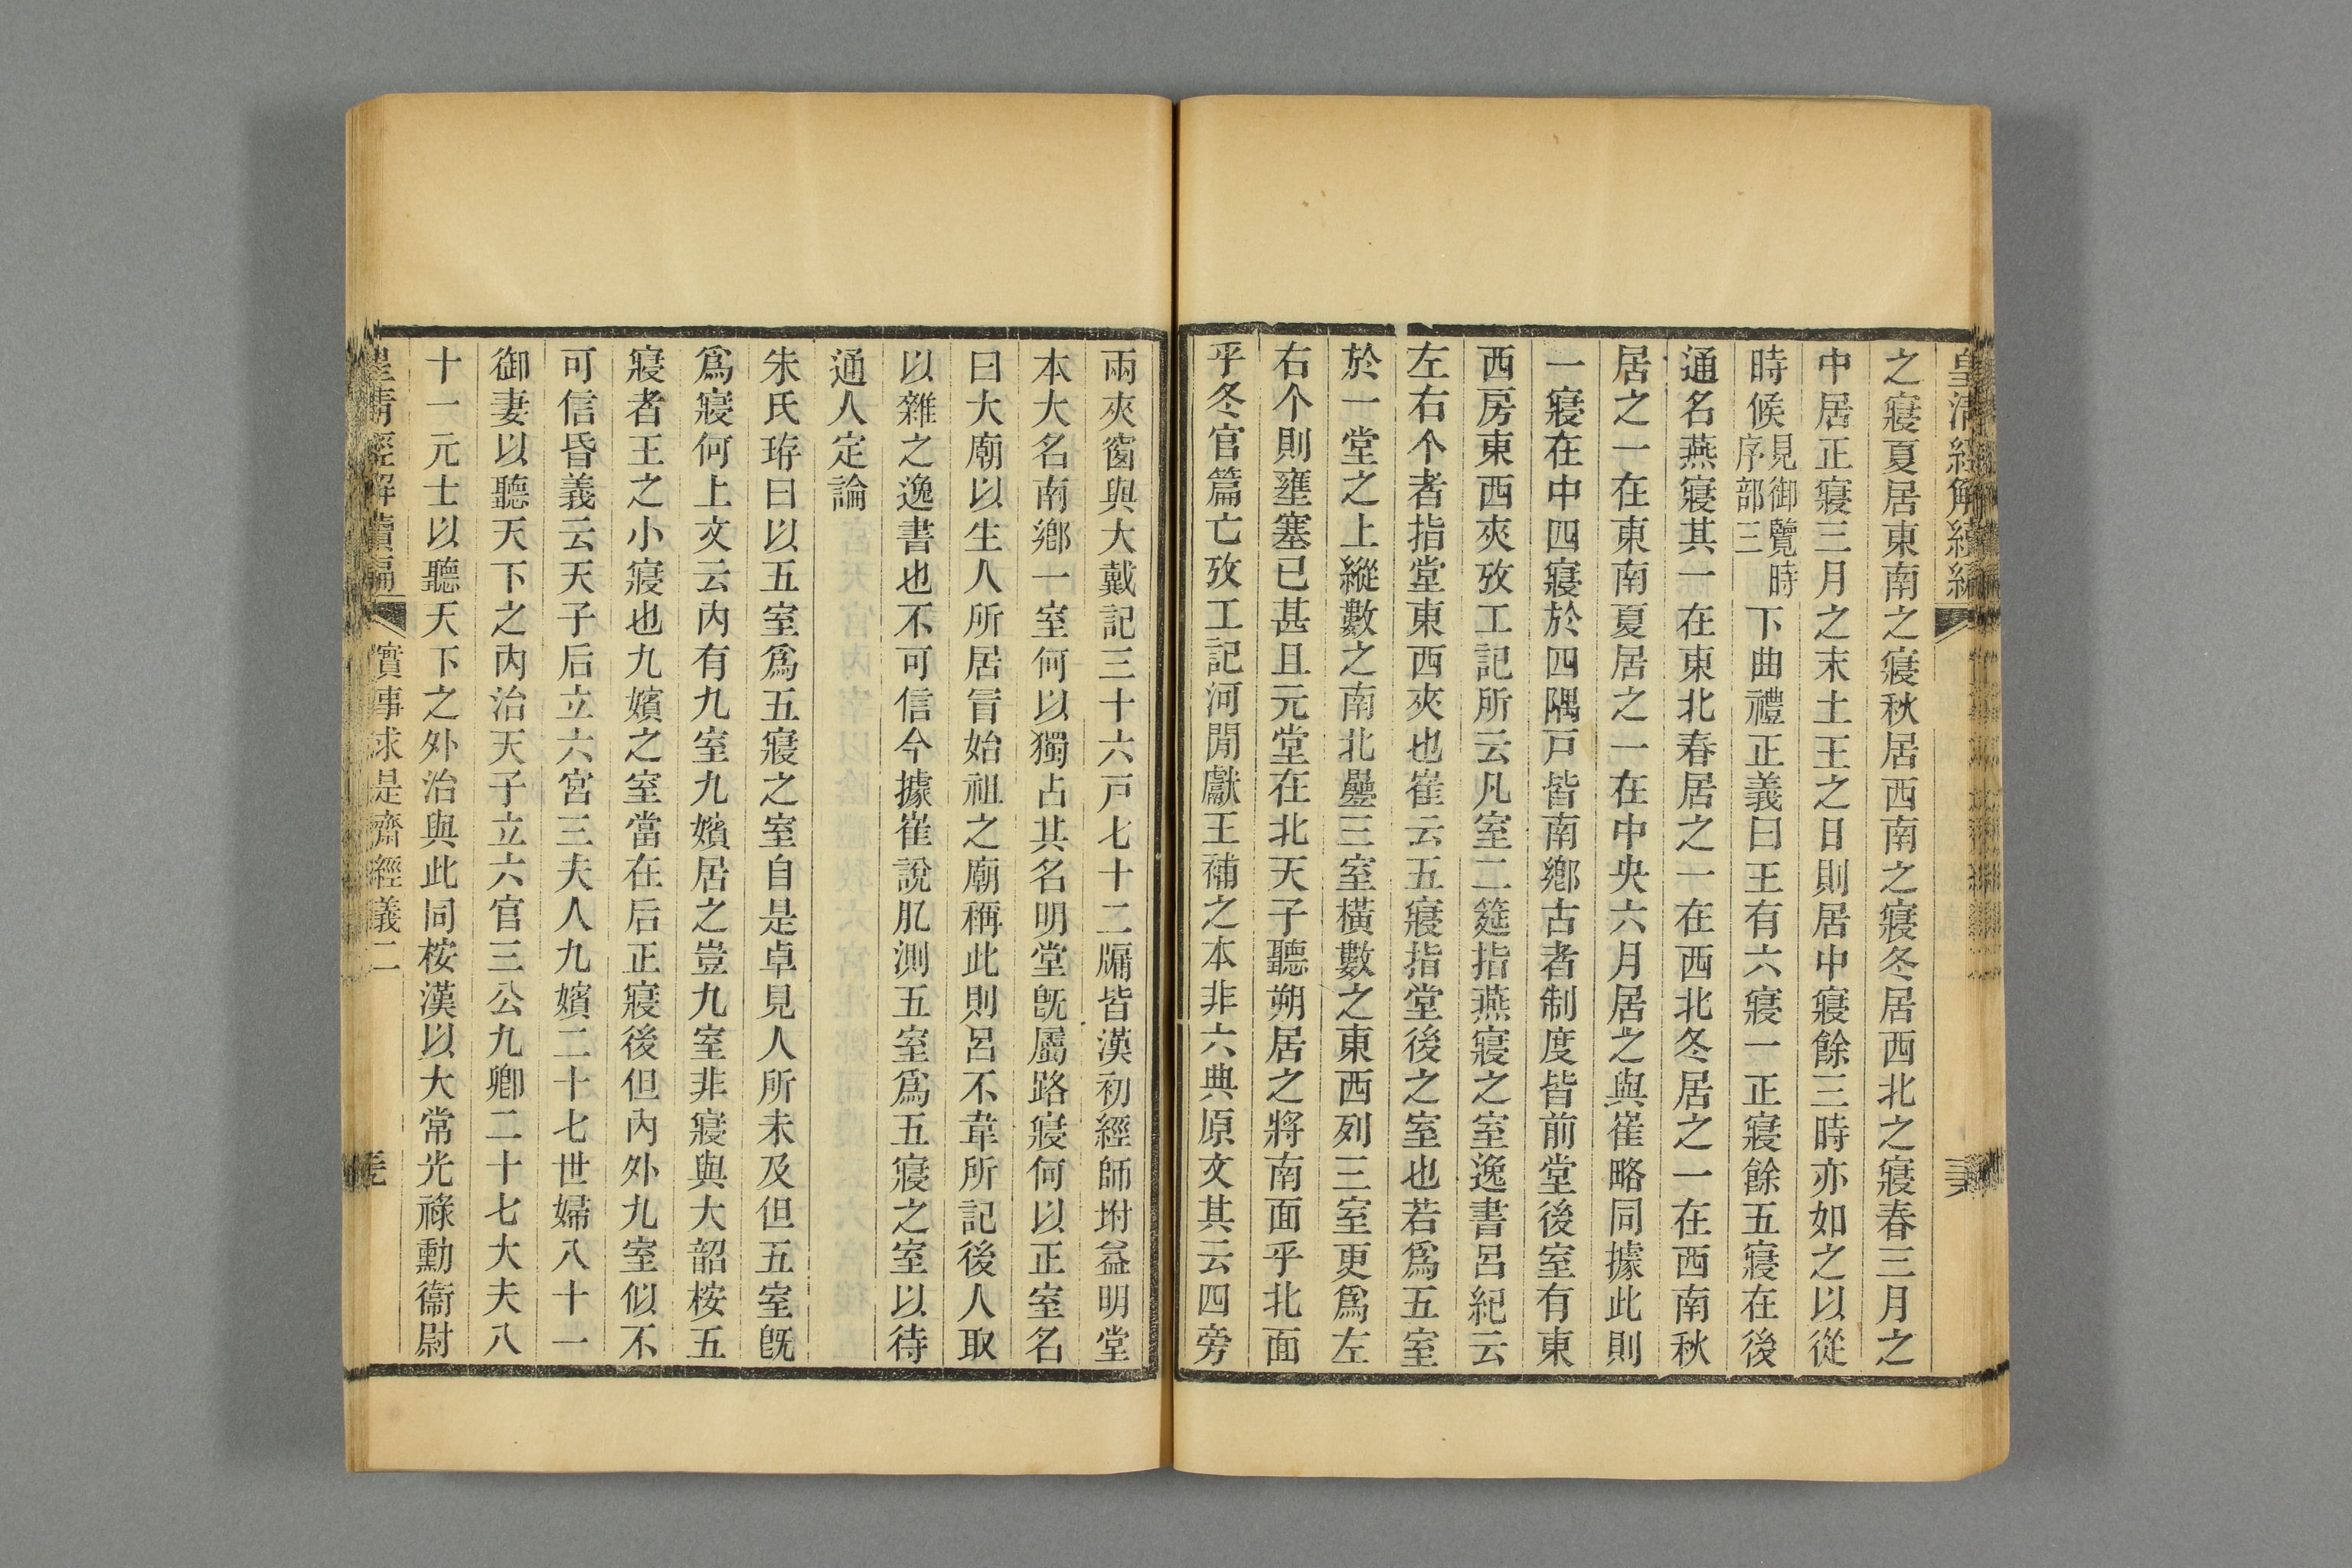 皇清經解續編
之寢夏居東南之寢秋居西南之寢冬居西北之寢春三月之
中居正寢三月之末土王之日則居中寢餘三時亦如之以從
時候見御覽時序部三下曲禮正義曰王有六寢一正寢餘五寢在後
通名燕寢其一在東北春居之一在西北冬居之一在西南秋
居之一在東南夏居之一在中央六月居之與崔略同據此則
一寢在中四寢於四隅戸皆南鄉古者制度皆前堂後室有東
西房東西夾攷工記所云凡室二筵指燕寢之室逸書呂紀云
左右个者指堂東西夾也崔云五寢指堂後之室也若爲五室
於一堂之上縱數之南北疊三室橫數之東西列三室更爲左
右个則壅塞已甚且元堂在北天子聽朔居之將南面乎北面
乎冬官篇亡攷工記河閒獻王補之本非六典原文其云四旁
兩夾窗與大戴記三十六戸七十二牖皆漢初經師坿益明堂
本大名南鄉一室何以獨占其名明堂旣屬路寢何以正室名
曰大廟以生人所居冒始祖之廟稱此則呂不韋所記後人取
以雜之逸書也不可信今據崔說肊測五室爲五寢之室以待
通人定論
朱氏珔曰以五室爲五寢之室自是卓見人所未及但五室旣
爲寢何上文云內有九室九嬪居之豈九室非寢與大韶桉五
寢者王之小寢也九嬪之室當在后正寢後但內外九室似不
可信昏義云天子后立六宮三夫人九嬪二十七世婦八十一
御妻以聽天下之內治天子立六官三公九卿二十七大夫八
十一元士以聽天下之外治與此同桉漢以大常光祿勳衞尉
皇清經解續編 實事求是齋經義二